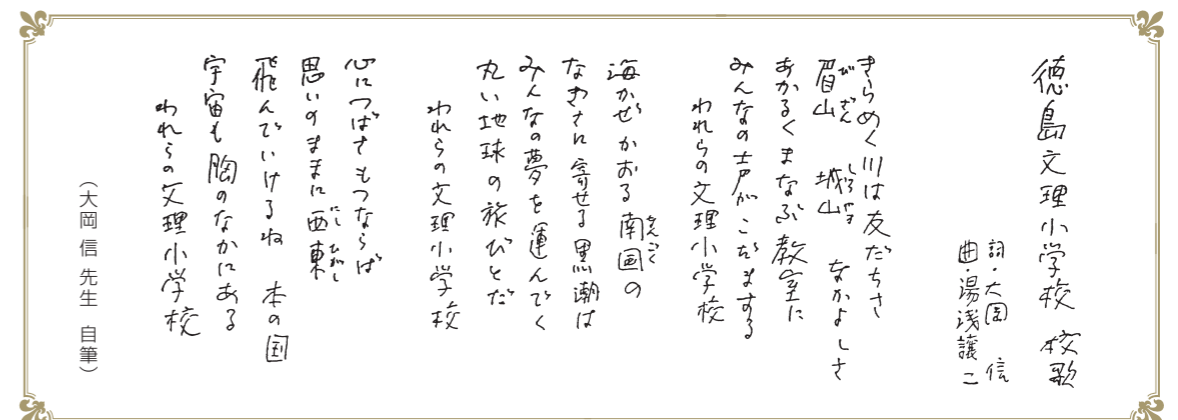 徳島文理小学校 校歌
詞・大岡 信
曲・湯浅譲二
きらめく川は友だちさ
眉山 城山 なかよしさ
びざん しろやま
あかるくまなぶ教室に
みんなの声がこだまする
われらの文理小学校
海かぜかおる南国の
なんごく
なぎさに寄せる黒潮は
みんなの夢を運んでく
丸い地球の旅びとだ
われらの文理小学校
心につばさもつならば
思いのままに西東
にしひがし
飛んでいけるね 本の国
宇宙も胸のなかにある
われらの文理小学校
(大岡 信 先生 自筆)